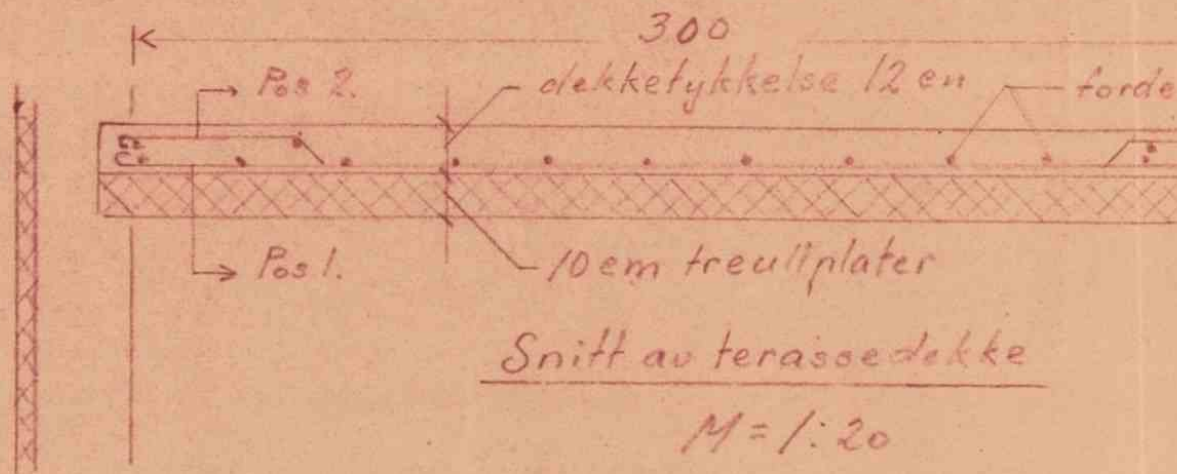 300
Pos 2.
dekketykkelse 12 cm
forde
Pos 1.
10 cm treullplater
Snitt av terassedekke
M = 1:20